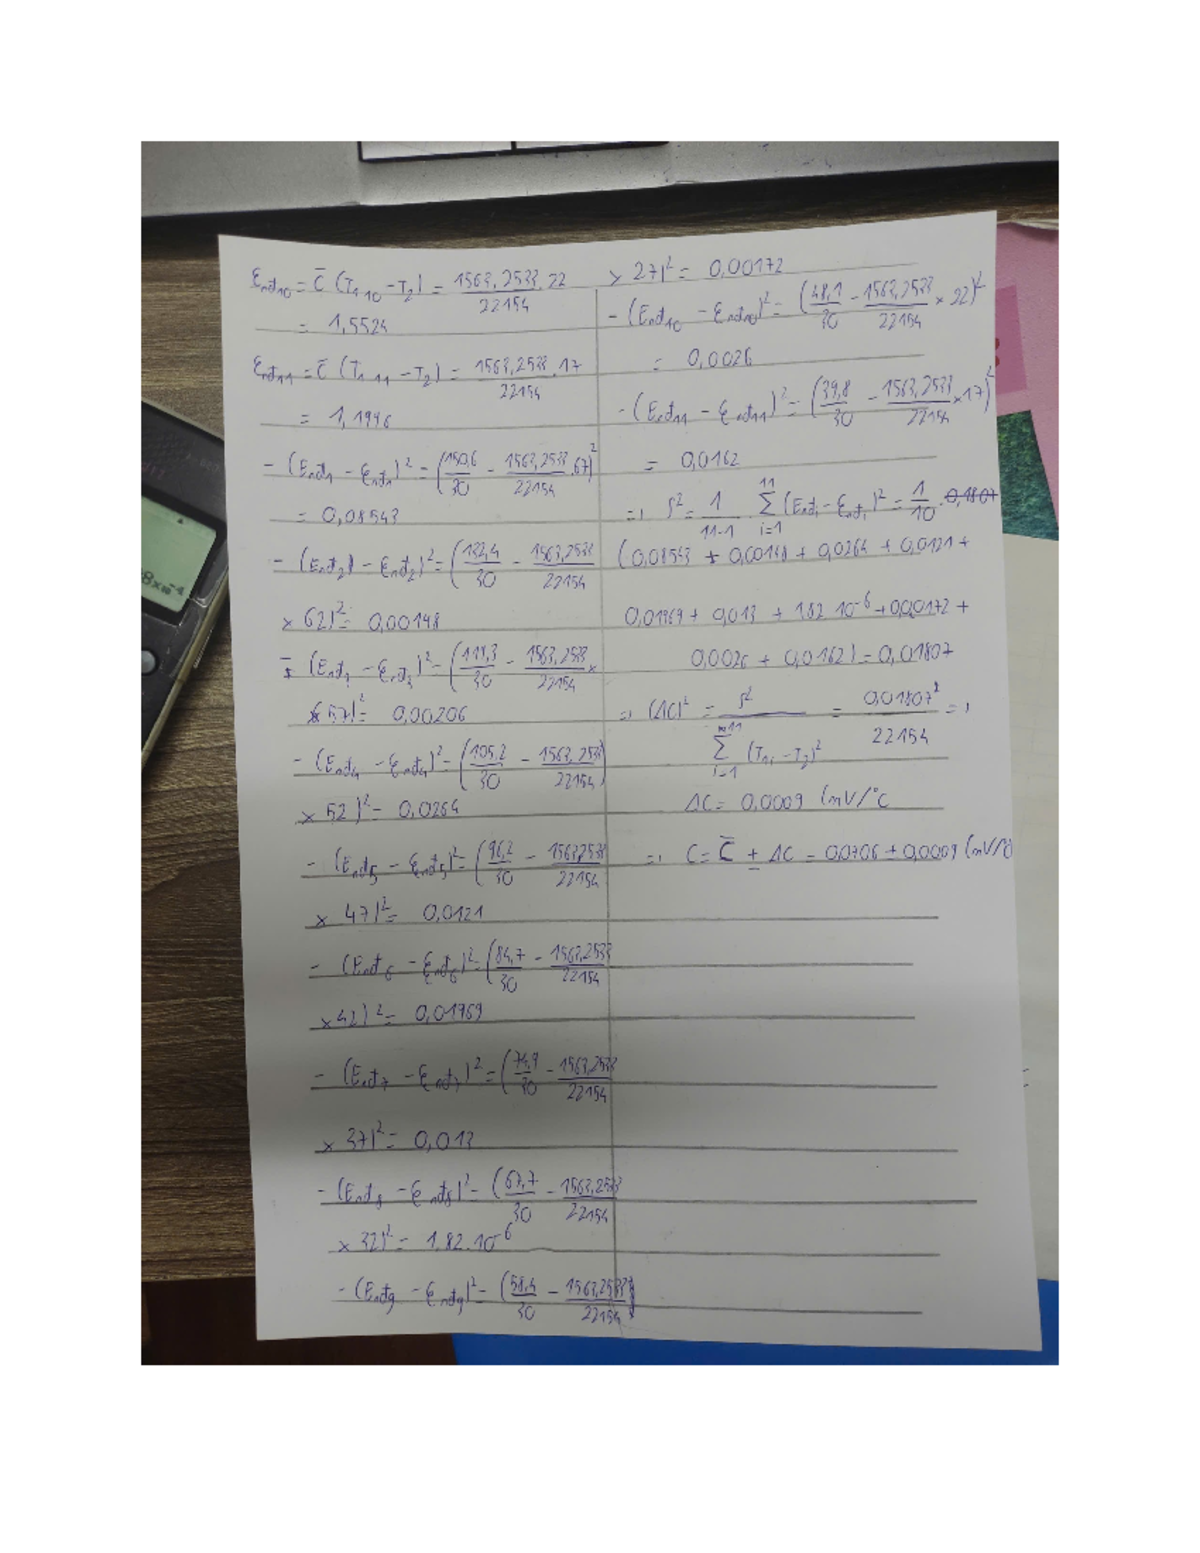 Ɛnđ10 = C̄ (T1 10 - T2) = 1563,2533 . 22 / 22154
= 1,5524
Ɛnđ11 = C̄ (T1 11 - T2) = 1563,2533 . 17 / 22154
= 1,1996
- (Enđ1 - Ɛnđ1)² = (150,6/30 - 1563,2533/22154 . 67)²
= 0,08543
- (Enđ2) - Ɛnđ2)² = (132,4/30 - 1563,2533/22154
× 62)² = 0,00148
- (Enđ3 - Ɛnđ3)² = (119,3/30 - 1563,2533/22154 ×
57)² = 0,00206
- (Enđ4 - Ɛnđ4)² = (105,2/30 - 1563,2533/22154)
× 52)² = 0,0264
- (Enđ5 - Ɛnđ5)² = (96,2/30 - 1563,2533/22154
× 47)² = 0,0121
- (Enđ6 - Ɛnđ6)² = (84,7/30 - 1563,2533/22154
× 42)² = 0,01969
- (Enđ7 - Ɛnđ7)² = (74,9/30 - 1563,2533/22154
× 37)² = 0,013
- (Enđ8 - Ɛnđ8)² = (67,7/30 - 1563,2533/22154
× 32)² = 1,82.10⁻⁶
- (Enđ9 - Ɛnđ9)² = (58,4/30 - 1563,2533/22154)
× 27)² = 0,00172
- (Enđ10 - Ɛnđ10)² = (48,1/30 - 1563,2533/22154 × 22)²
= 0,0026
- (Enđ11 - Ɛnđ11)² = (39,8/30 - 1563,2533/22154 × 17)²
= 0,0162
=> S² = 1/(11-1) . Σ (i=1, 11) (Enđi - Ɛnđi)² = 1/10 . 0,1807
(0,08543 + 0,00148 + 0,0264 + 0,0121 +
0,01969 + 0,013 + 1,82 10⁻⁶ + 0,00172 +
0,0026 + 0,0162) = 0,01807
=> (ΔC)² = S² / Σ (i=1, n=11) (T1i - T2)² = 0,01807² / 22154 =>
ΔC = 0,0009 (mV/°C
=> C = C̄ ± ΔC = 0,0706 ± 0,0009 (mV/°C)
8x10⁻⁴